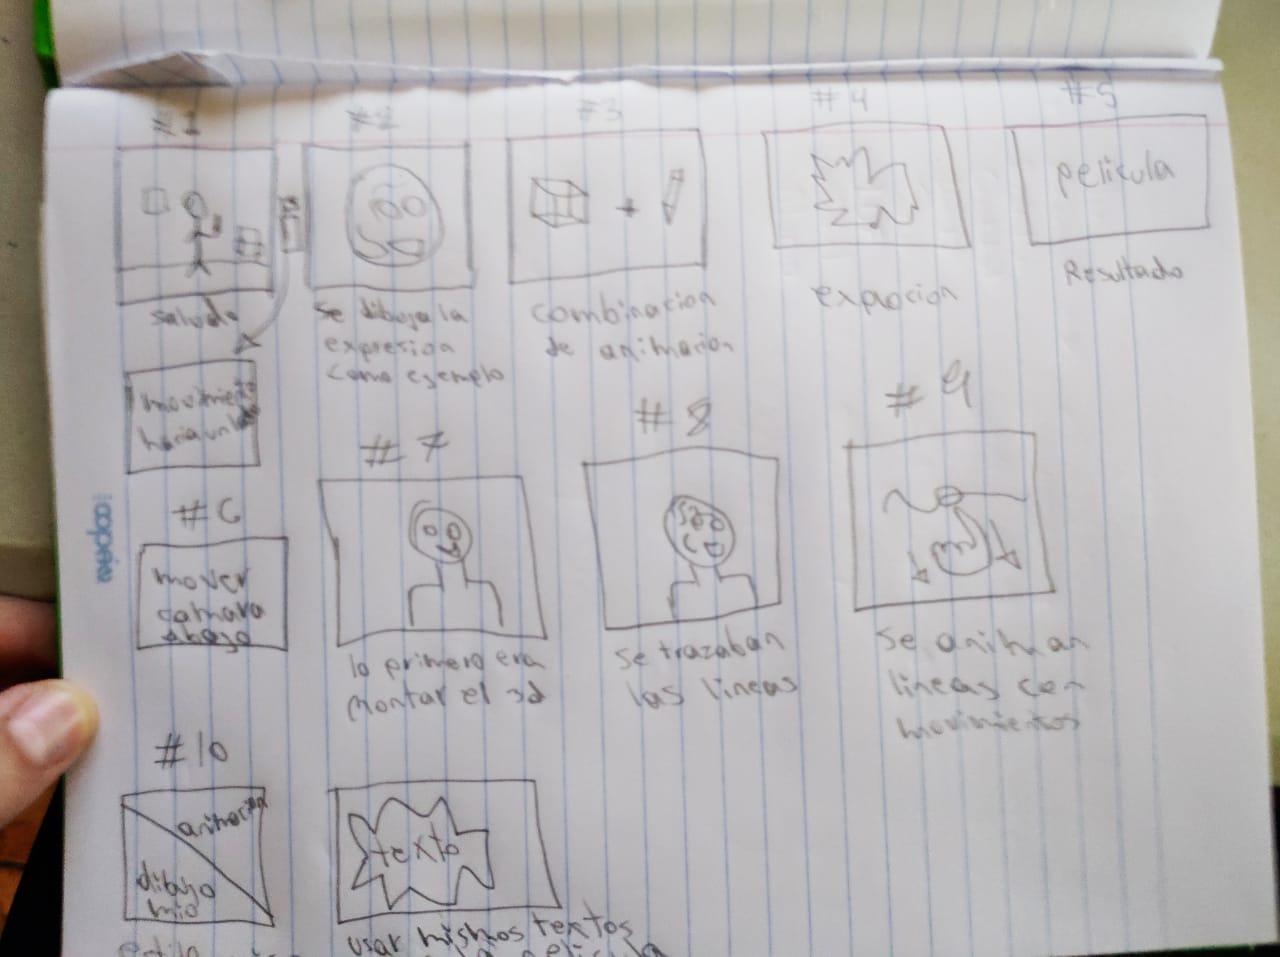 #1
saluda
movimiento
hacia un
#2
se dibuja la
expresion
como ejemplo
#3
combinacion
de animacion
#4
explocion
#5
pelicula
Resultado
#6
mover
camara
abajo
#7
lo primero era
montar el 3d
#8
se trazaban
las lineas
#9
se animan
lineas con
movimientos
#10
animacion
dibujo
mio
estilo
texto
usar mismos textos
pelicula
copán